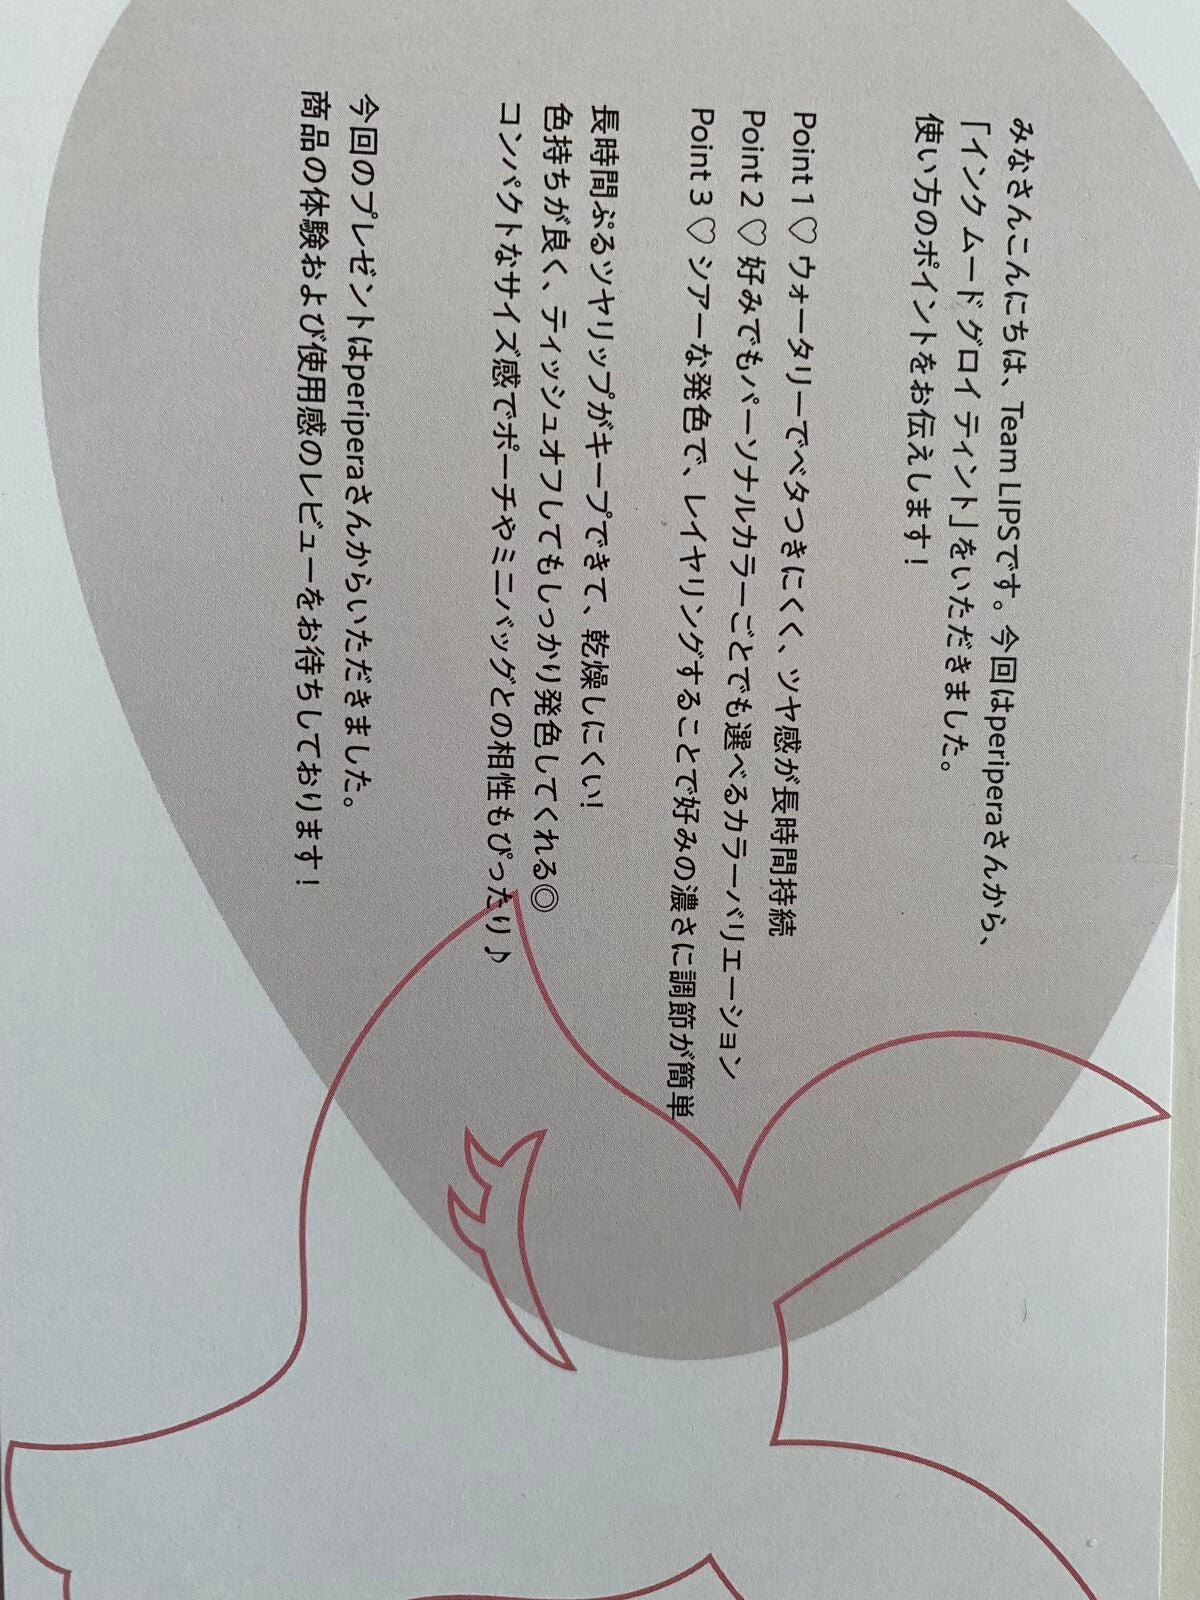 みなさんこんにちは、Team LIPSです。今回はperiperaさんから、
「インク ムード グロイ ティント」をいただきました。
使い方のポイントをお伝えします！
Point 1 ♡ ウォータリーでベタつきにくく、ツヤ感が長時間持続
Point 2 ♡ 好みでもパーソナルカラーごとでも選べるカラーバリエーション
Point 3 ♡ シアーな発色で、レイヤリングすることで好みの濃さに調節が簡単
長時間ぷるツヤリップがキープできて、乾燥しにくい！
色持ちが良く、ティッシュオフしてもしっかり発色してくれる◎
コンパクトなサイズ感でポーチやミニバッグとの相性もぴったり♪
今回のプレゼントはperiperaさんからいただきました。
商品の体験および使用感のレビューをお待ちしております！